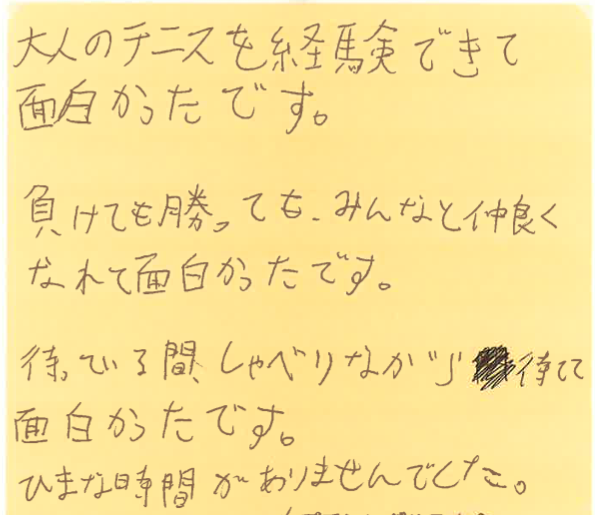 大人のテニスを経験できて
面白かったです。
負けても勝っても、みんなと仲良く
なれて面白かったです。
待っている間、しゃべりながら待てて
面白かったです。
ひまな時間がありませんでした。